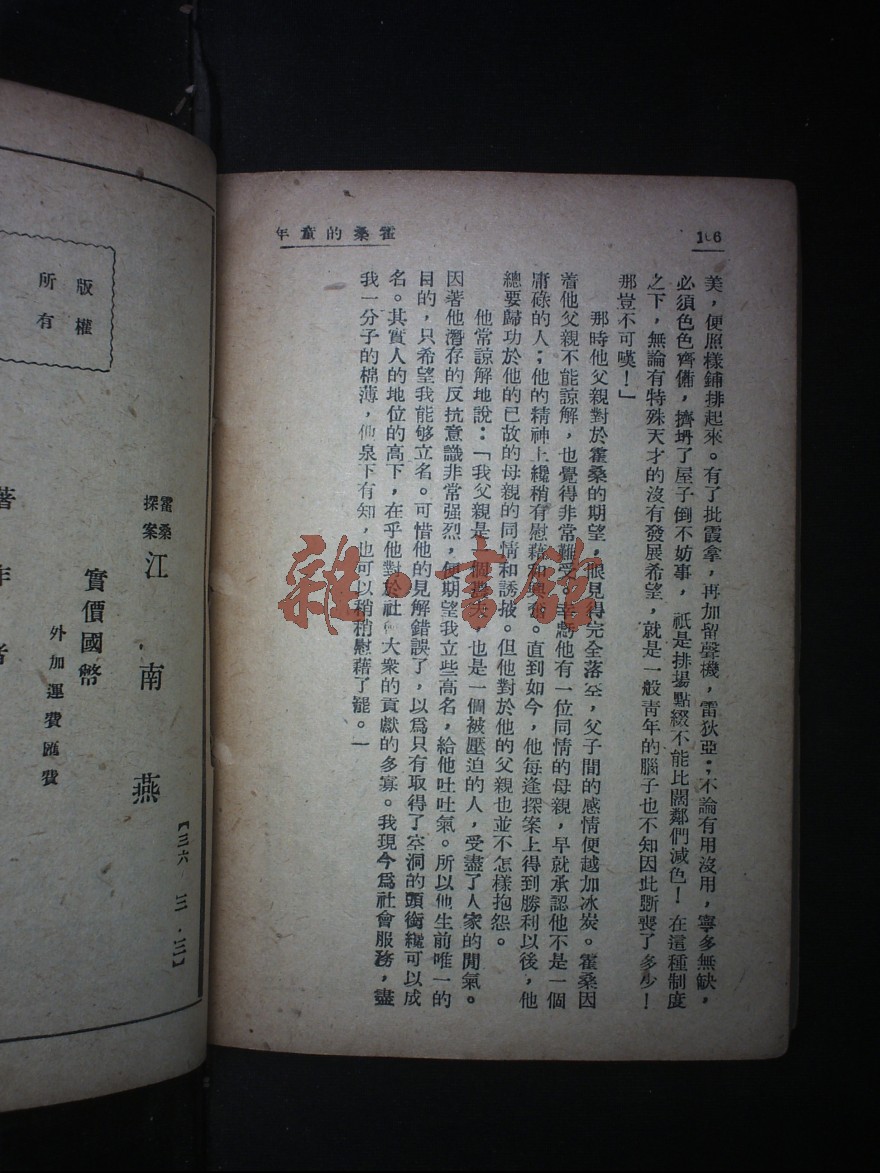 霍桑的童年
106
美，便照樣鋪排起來。有了批霞拿，再加留聲機，雷狄亞；不論有用沒用，寧多無缺，
必須色色齊備，擠坍了屋子倒不妨事，祇是排場點綴不能比闊鄰們減色！在這種制度
之下，無論有特殊天才的沒有發展希望，就是一般青年的腦子也不知因此斲喪了多少！
那豈不可嘆！」
那時他父親對於霍桑的期望，眼見得完全落空，父子間的感情便越加冰炭。霍桑因
着他父親不能諒解，也覺得非常難受。幸虧他有一位同情的母親，早就承認他不是一個
庸碌的人；他的精神上纔稍有慰藉和興奮。直到如今，他每逢探案上得到勝利以後，他
總要歸功於他的已故的母親的同情和誘掖。但他對於他的父親也並不怎樣抱怨。
他常諒解地說：「我父親是一個，也是一個被壓迫的人，受盡了人家的閒氣。
因著他潛存的反抗意識非常强烈，便期望我立些高名，給他吐吐氣。所以他生前唯一的
目的，只希望我能够立名。可惜他的見解錯誤了，以爲只有取得了空洞的頭銜纔可以成
名。其實人的地位的高下，在乎他對於社大衆的貢獻的多寡。我現今爲社會服務，盡
我一分子的棉薄，他泉下有知，也可以稍稍慰藉了罷。
版權
所有
霍桑
探案
江南燕
實價國幣
外加運費匯費
著作者
【三六·三·三】
雜·書館